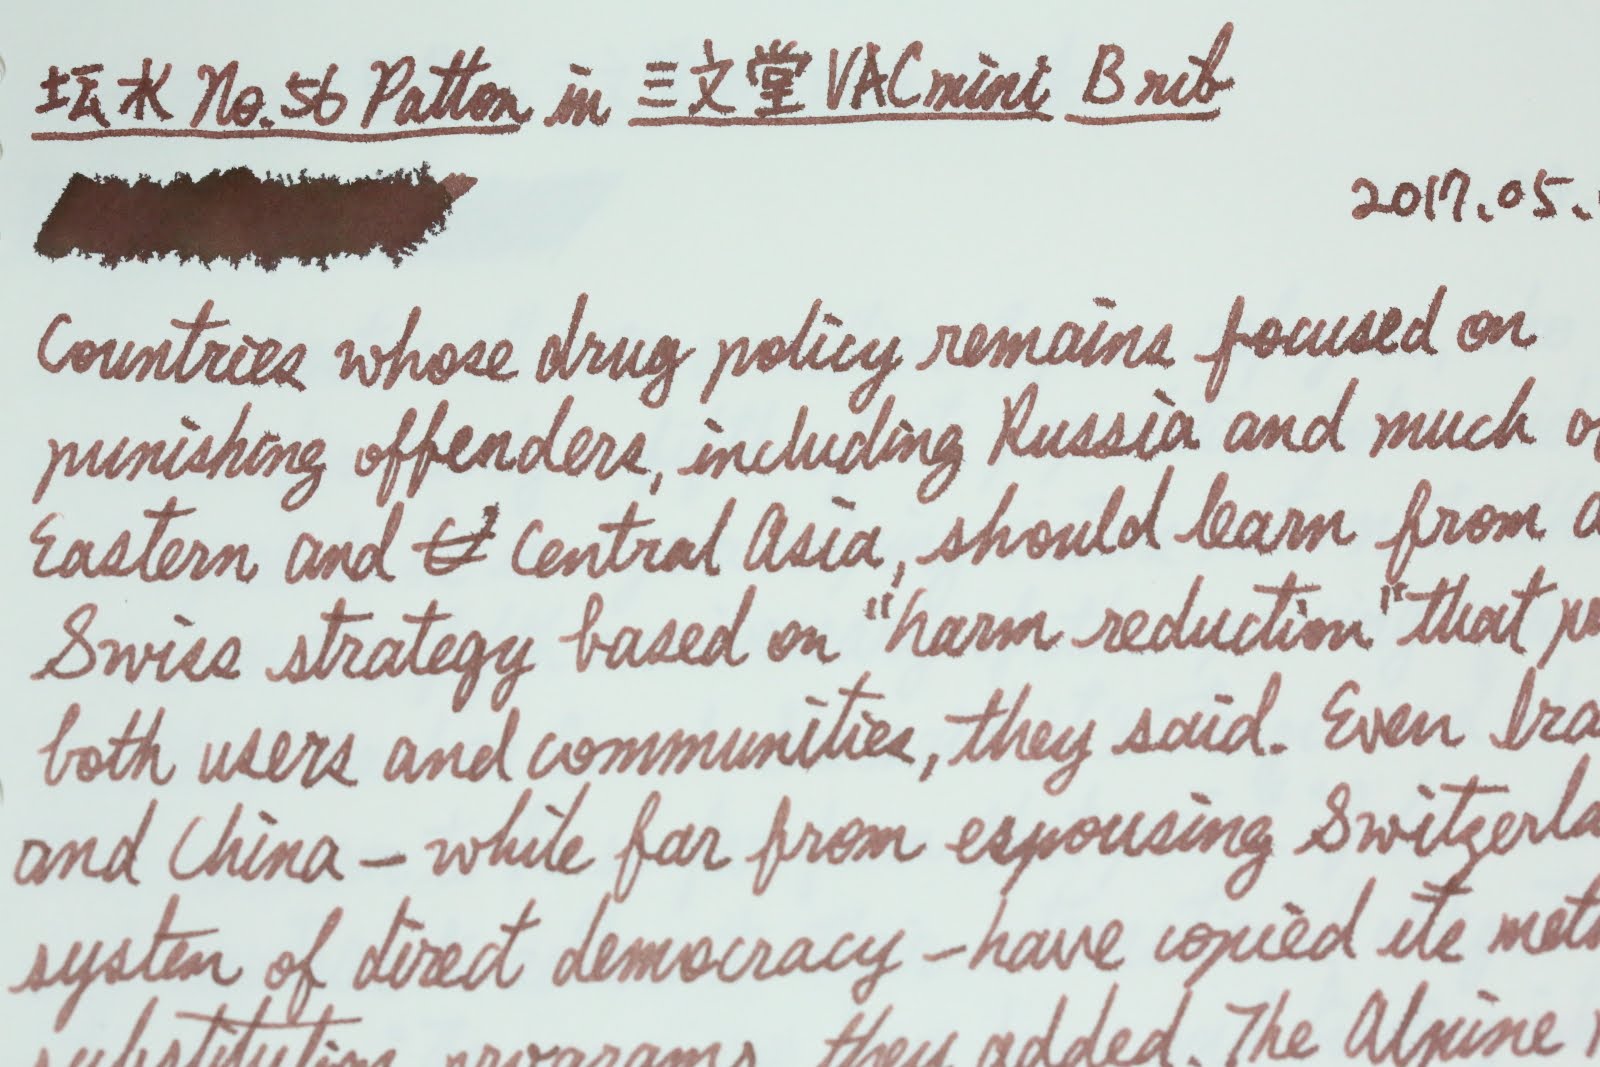 坛水 No.56 Patton in 三文堂 VACmini B nib
2017.05.
Countries whose drug policy remains focused on
punishing offenders, including Russia and much of
Eastern and Central Asia, should learn from a
Swiss strategy based on "harm reduction" that
both users and communities, they said. Even
and China — while far from espousing
system of direct democracy — have copied its
substitution programs, they added. The Alpine